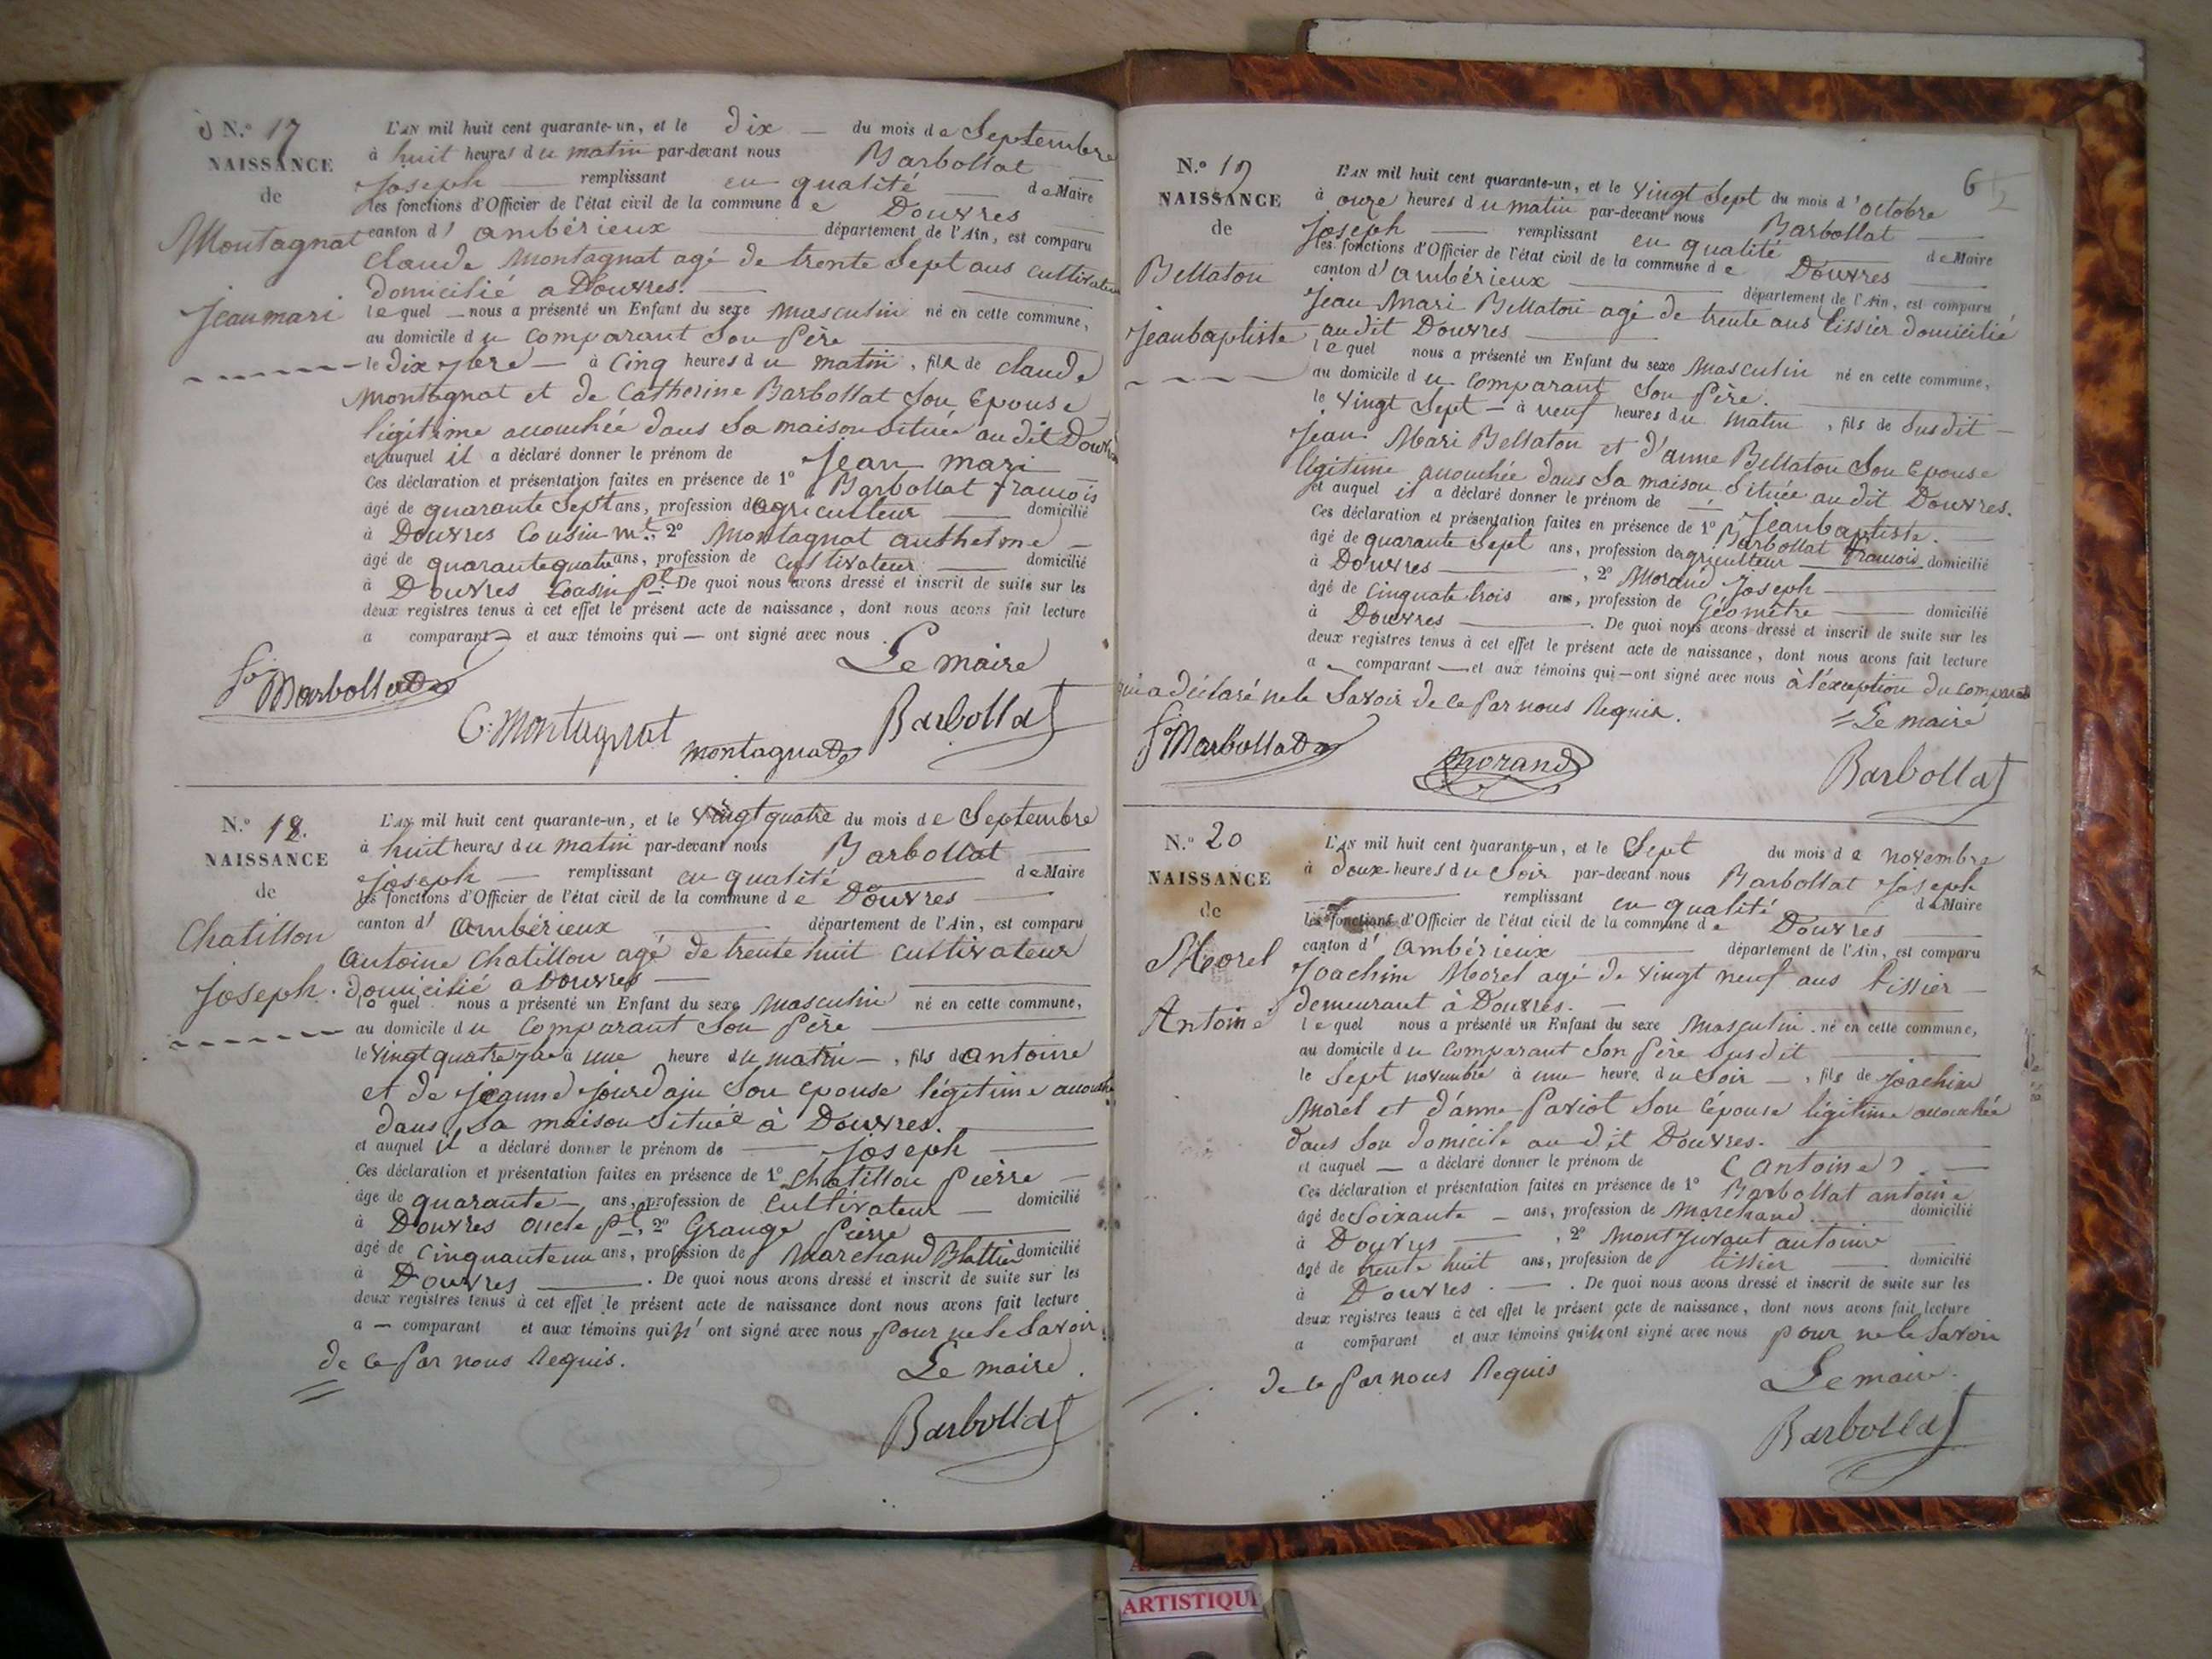 N.º 17
NAISSANCE
de
Montagnat
Jean mari
L'AN mil huit cent quarante-un, et le dix — du mois de Septembre
à huit heures du matin par-devant nous Barbollat
Joseph — remplissant en qualité — de Maire
les fonctions d'Officier de l'état civil de la commune de Douvres
canton d' ambérieux département de l'Ain, est comparu
Claude Montagnat agé de trente Sept ans cultivateur
domicilié a Douvres.
lequel — nous a présenté un Enfant du sexe masculin né en cette commune,
au domicile du comparant Son Père
le dix 7bre — à cinq heures du matin, fils de claude
Montagnat et de Catherine Barbollat Son Epouse
légitime accouchée dans Sa maison Située au dit Douvres
et auquel il a déclaré donner le prénom de Jean mari
Ces déclaration et présentation faites en présence de 1º Barbollat françois
âgé de quarante Sept ans, profession d'agriculteur — domicilié
à Douvres Cousin mt. 2º Montagnat anthelme —
âgé de quarante quatre ans, profession de cultivateur — domicilié
à Douvres Cousin pl. De quoi nous avons dressé et inscrit de suite sur les
deux registres tenus à cet effet le présent acte de naissance, dont nous avons fait lecture
a comparant et aux témoins qui — ont signé avec nous.
Le maire
fs Barbollat
C. Montagnat
montagnat
Barbollat
N.º 18.
NAISSANCE
de
Chatillon
Joseph.
L'AN mil huit cent quarante-un, et le vingt quatre du mois de Septembre
à huit heures du matin par-devant nous Barbollat
Joseph — remplissant en qualité de Maire
les fonctions d'Officier de l'état civil de la commune de Douvres
canton d' ambérieux département de l'Ain, est comparu
Antoine Chatillon agé de trente huit cultivateur
domicilié a Douvres —
lequel nous a présenté un Enfant du sexe Masculin né en cette commune,
au domicile du comparant Son Père
le vingt quatre 7bre à une heure du matin —, fils d'antoine
et de jeanne Son epouse légitime accouchée
dans Sa maison Située à Douvres.
et auquel il a déclaré donner le prénom de Joseph
Ces déclaration et présentation faites en présence de 1º Chatillon Pierre
âgé de quarante — ans, profession de Cultivateur — domicilié
à Douvres oncle pl, 2º Grange Pierre
âgé de Cinquante un ans, profession de Marchand Blattier domicilié
à Douvres . De quoi nous avons dressé et inscrit de suite sur les
deux registres tenus à cet effet le présent acte de naissance dont nous avons fait lecture
a — comparant et aux témoins qui n' ont signé avec nous pour ne le Savoir
de ce Par nous Requis.
Le maire.
Barbollat
6
N.º 19
NAISSANCE
de
Bellaton
Jeanbaptiste
L'AN mil huit cent quarante-un, et le vingt Sept du mois d'octobre
à onze heures du matin par-devant nous Barbollat
Joseph — remplissant en qualité de Maire
les fonctions d'Officier de l'état civil de la commune de Douvres
canton d' ambérieux département de l'Ain, est comparu
Jean Mari Bellaton agé de trente ans tissier domicilié
au dit Douvres
lequel nous a présenté un Enfant du sexe Masculin né en cette commune,
au domicile du comparant Son Père.
le vingt Sept — à neuf heures du matin, fils de Susdit —
Jean Mari Bellaton et d'anne Bellaton Son Epouse
légitime accouchée dans Sa maison Située au dit Douvres.
et auquel il a déclaré donner le prénom de Jeanbaptiste.
Ces déclaration et présentation faites en présence de 1º Barbollat françois
âgé de quarante Sept ans, profession de agriculteur domicilié
à Douvres , 2º Morand Joseph
âgé de cinquate trois ans, profession de Géomètre domicilié
à Douvres . De quoi nous avons dressé et inscrit de suite sur les
deux registres tenus à cet effet le présent acte de naissance, dont nous avons fait lecture
a — comparant — et aux témoins qui — ont signé avec nous à l'éxception du comparant
qui a déclaré ne le Savoir de ce Par nous Requis.
Le maire
fs Barbollat
Morand
Barbollat
N.º 20
NAISSANCE
de
Morel
Antoine
L'AN mil huit cent quarante-un, et le Sept du mois de novembre
à deux heures du Soir par-devant nous Barbollat Joseph
remplissant en qualité de Maire
les fonctions d'Officier de l'état civil de la commune de Douvres
canton d' ambérieux département de l'Ain, est comparu
Joachim Morel agé de vingt neuf ans tissier
demeurant à Douvres. —
lequel nous a présenté un Enfant du sexe Masculin. né en cette commune,
au domicile du comparant Son Père Susdit
le Sept novembre à une heure du Soir —, fils de Joachim
Morel et d'anne Pariot Son Epouse légitime accouchée
dans Son domicile au dit Douvres.
et auquel — a déclaré donner le prénom de (Antoine).
Ces déclaration et présentation faites en présence de 1º Barbollat antoine
âgé de Soixante — ans, profession de Marchand domicilié
à Douvres , 2º Montjuvant antoine
âgé de trente huit ans, profession de tissier domicilié
à Douvres. — . De quoi nous avons dressé et inscrit de suite sur les
deux registres tenus à cet effet le présent acte de naissance, dont nous avons fait lecture
a comparant et aux témoins qui n'ont signé avec nous pour ne le Savoir
de ce Par nous Requis
Le maire.
Barbollat
ARTISTIQU